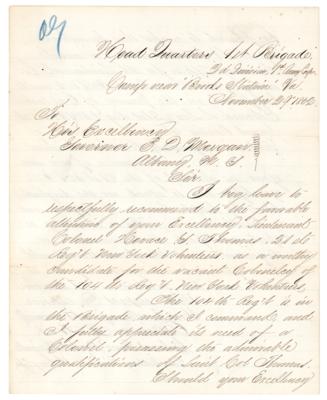 Head Quarters 1st Brigade,
2d Division, 1st Army Corps
Camp near Brooks Station Va.
November 29th 1862.
To
His Excellency
Governor E. D. Morgan
Albany N. Y.
Sir.
I beg leave to
respectfully recommend to the favorable
attention of your Excellency, Lieutenant
Colonel Horace G. Thomas. 21st
Reg't New York Volunteers, as a worthy
candidate for the vacant Colonelcy of
the 104th Reg't. New York Volunteers.
The 104th Reg't is in
the Brigade which I command and
I fully appreciate its need of a
Colonel possessing the admirable
qualifications of Lieut Col Thomas.
Should your Excellency